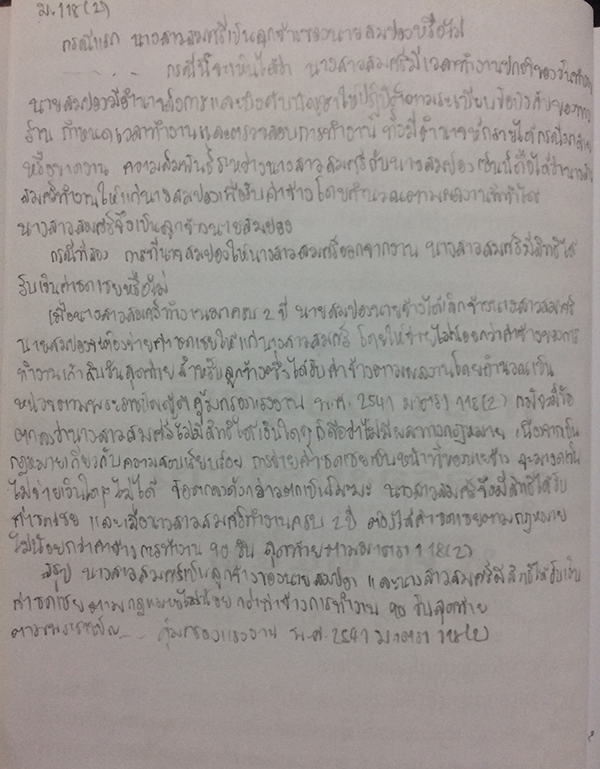 ม.118(2)
กรณีแรก นางสาวสมศรีเป็นลูกจ้างของนายสมปองหรือไม่
กรณีนี้จะเห็นได้ว่า นางสาวสมศรีมีเวลาทำงานปกติของวันทำงาน
นายสมปองมีอำนาจสั่งการและบังคับบัญชาให้ปฏิบัติตามระเบียบข้อบังคับของทาง
ร้าน กำหนดเวลาทำงานและตรวจสอบการทำงานได้ ทั้งมีอำนาจหักรายได้กรณีมาสาย
หรือขาดงาน ความสัมพันธ์ระหว่างนางสาวสมศรีกับนายสมปองเช่นนี้ถือได้ว่านางสาว
สมศรีทำงานให้แก่นายสมปองเพื่อรับค่าจ้างโดยคำนวณตามผลงานที่ทำได้
นางสาวสมศรีจึงเป็นลูกจ้างนายสมปอง
กรณีที่สอง การที่นายสมปองให้นางสาวสมศรีออกจากงาน นางสาวสมศรีมีสิทธิได้
รับเงินค่าชดเชยหรือไม่
เมื่อนางสาวสมศรีทำงานมาครบ 2 ปี นายสมปองนายจ้างได้เลิกจ้างนางสาวสมศรี
นายสมปองจึงต้องจ่ายค่าชดเชยให้แก่นางสาวสมศรี โดยให้จ่ายไม่น้อยกว่าค่าจ้างของการ
ทำงานเก้าสิบวันสุดท้าย สำหรับลูกจ้างซึ่งได้รับค่าจ้างตามผลงานโดยคำนวณเป็น
หน่วยตามพระราชบัญญัติคุ้มครองแรงงาน พ.ศ. 2541 มาตรา 118(2) กรณีที่มีข้อ
ตกลงว่านางสาวสมศรีไม่มีสิทธิได้เงินใดๆ ก็ถือว่าไม่มีผลทางกฎหมาย เนื่องจากเป็น
กฎหมายเกี่ยวกับความสงบเรียบร้อย การจ่ายค่าชดเชยเป็นหน้าที่ของนายจ้าง จะมาตกลง
ไม่จ่ายเงินใดๆไม่ได้ ข้อตกลงดังกล่าวตกเป็นโมฆะ นางสาวสมศรีจึงมีสิทธิได้รับ
ค่าชดเชย และเมื่อนางสาวสมศรีทำงานครบ 2 ปี ต้องได้ค่าชดเชยตามกฎหมาย
ไม่น้อยกว่าค่าจ้างการทำงาน 90 วัน สุดท้ายตามมาตรา 118(2)
สรุป นางสาวสมศรีเป็นลูกจ้างของนายสมปอง และนางสาวสมศรีมีสิทธิได้รับเงิน
ค่าชดเชยตามกฎหมายไม่น้อยกว่าค่าจ้างการทำงาน 90 วันสุดท้าย
คุ้มครองแรงงาน พ.ศ. 2541 มาตรา 118(2)